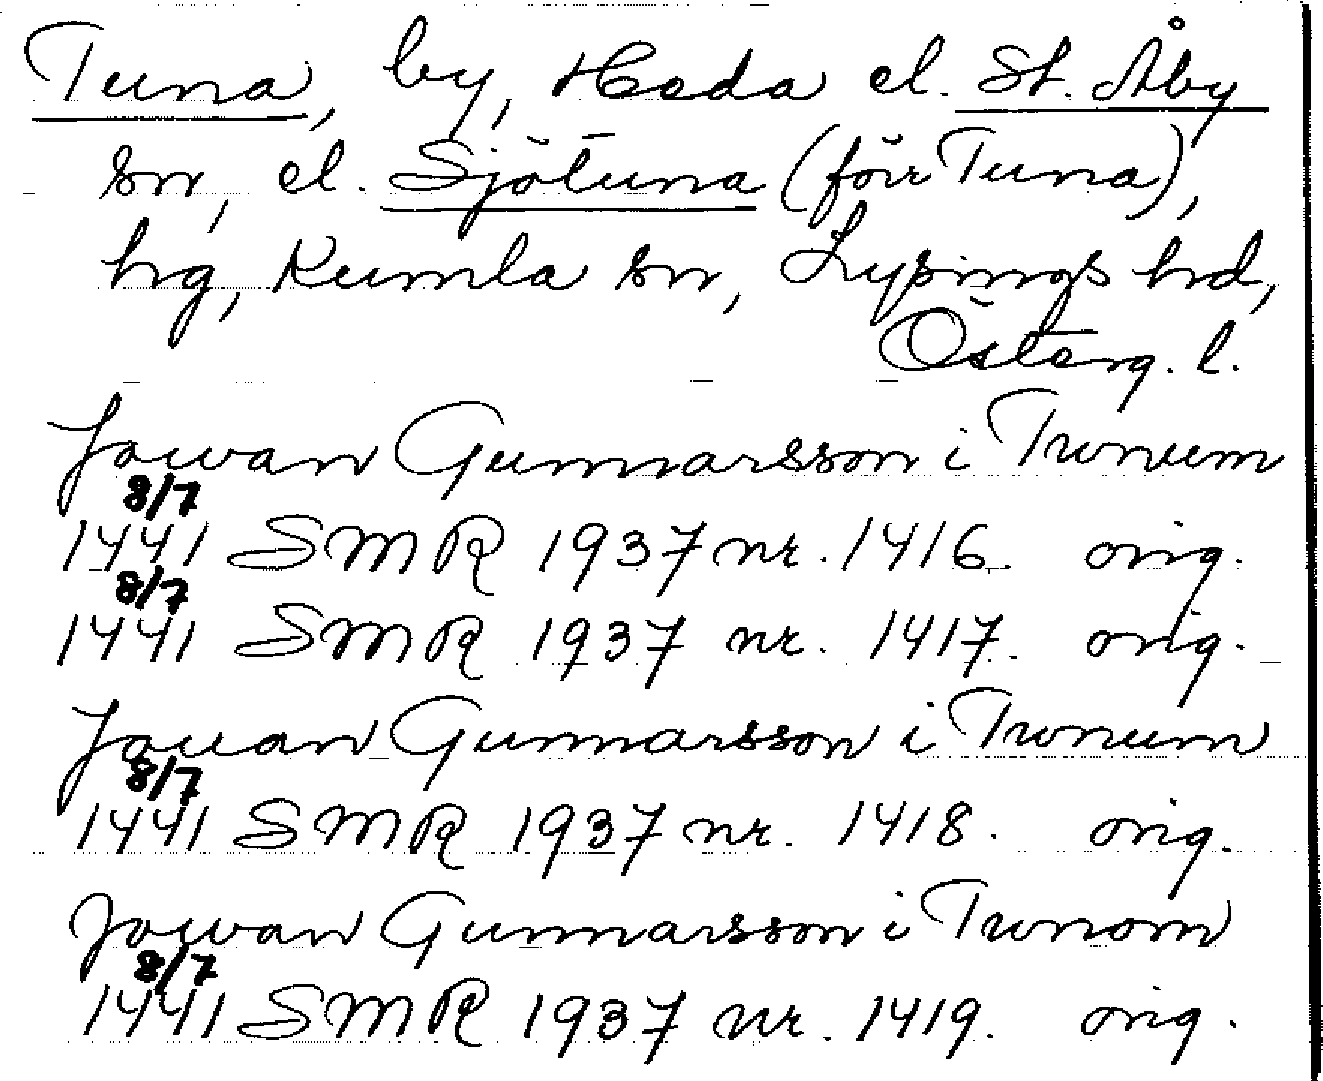 Tuna, by, Heda el. St. Åby
sn, el. Sjötuna (förr Tuna),
hg, Kumla sn, Lysings hd,
Österg. l.
Jowan Gunnarsson i Twnum
8/7
1441 SMR 1937 nr. 1416. orig.
8/7
1441 SMR 1937 nr. 1417. orig.
Jouan Gunnarsson i Twnum
8/7
1441 SMR 1937 nr. 1418. orig.
Jowan Gunnarsson i Twnom
8/7
1441 SMR 1937 nr. 1419. orig.